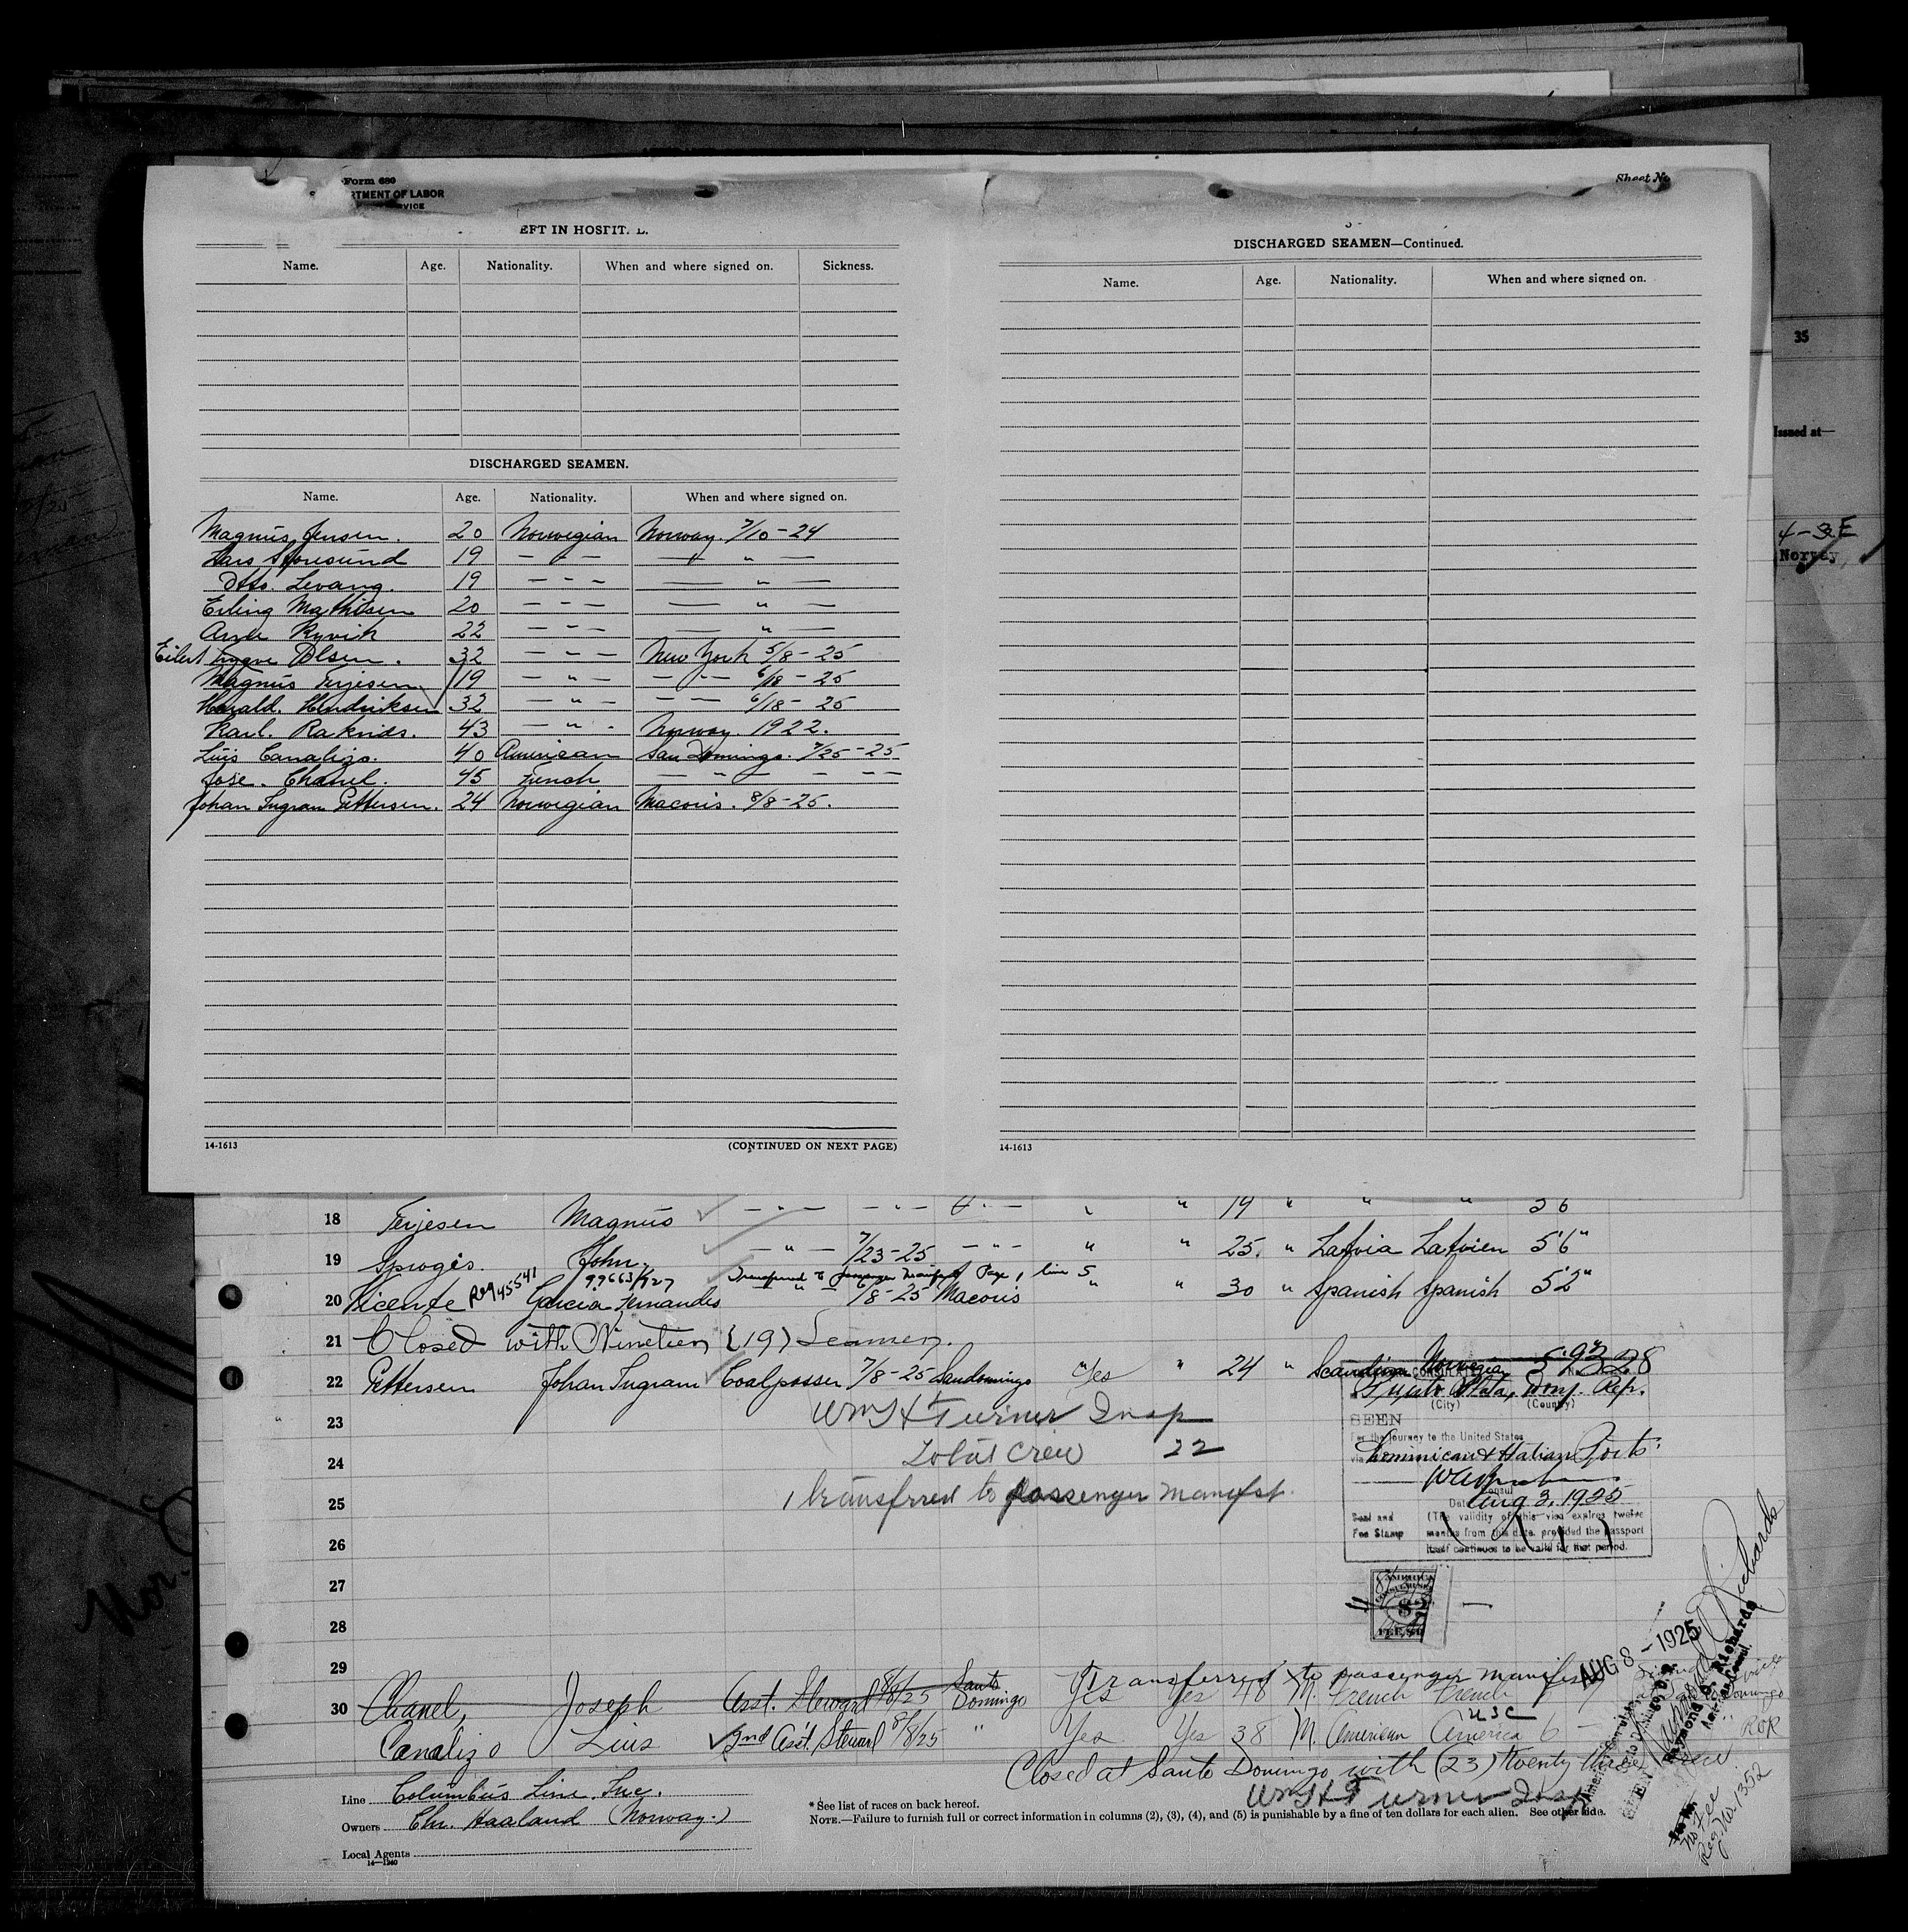 Form 680
RTMENT OF LABOR
RVICE
EFT IN HOSPIT L.
Name. Age. Nationality. When and where signed on. Sickness.
DISCHARGED SEAMEN.
Name. Age. Nationality. When and where signed on.
Magnus Jensen. 20 Norwegian Norway. 7/10-24
Lars 19 — " —
Otto. Levang. 19 — " — — " —
Erling Mathisen 20 — " — — " —
Arne Ryvik 22 — " — — " —
Eilert Trygve Olsen. 32 — " — New York 5/8-25
Magnus Terjesen 19 — " — — " — 6/18-25
Harald. Hendriksen 32 — " — — " — 6/18-25
Karl. Raknes. 43 — " — Norway. 1922.
Luis Canalizo. 40 American San Domingo. 7/25-25
Jose. Chanel. 45 French — " — — —
Johan Ingram Pettersen. 24 Norwegian Macoris. 8/8-25.
14-1613 (CONTINUED ON NEXT PAGE)
Sheet No
DISCHARGED SEAMEN—Continued.
Name. Age. Nationality. When and where signed on.
14-1613
35
Issued at—
Norway
18 Terjesen Magnus — " — — " — " " 19 " " " 5 6
19 Sprogis. John. — " — 7/23-25 — " — " " 25. " Latvia Latvien 5'6"
99663/927 Transferred to passenger manifest Page 1 line 5
20 Vicente Reg 45541 Garcia Fernandes — " — 6/8-25 Macoris " " 30 " Spanish Spanish 5'2"
21 Closed with Nineteen (19) Seamen.
22 Pettersen Johan Ingram Coalpasser 7/8-25 Sandomingo Yes " 24 " Scandina Norwegia
23 Wm H Turner Insp
24 Total Crew 22
25 1 transferred to passenger manifest.
26
27
28
29
Puerto Plata, Dom. Rep.
(City) (Country)
SEEN
For the journey to the United States
via Dominican & Haitian Ports.
Consul
Date Aug 3, 1925
Seal and Fee Stamp
(The validity of this visa expires twelve
months from this date, provided the passport
itself continues to be valid for that period.
Transferred to passenger manifest
30 Chanel, Joseph Asst. Steward 8/8/25 Santo Domingo Yes Yes 48 M. French French
USC
Canalizo Luis 2nd Ass't. Steward 8/8/25 " Yes Yes 38 M. American America 6 —
Closed at Santo Domingo with (23) twenty three crew
Wm H Turner Insp
AUG 8 - 1925
SEEN
Raymond D. Richards
American Consul.
No Fee
Reg. No. 1352
Line Columbus Line. Inc.
Owners Chr. Haaland (Norway.)
Local Agents
14—1240
* See list of races on back hereof.
NOTE.—Failure to furnish full or correct information in columns (2), (3), (4), and (5) is punishable by a fine of ten dollars for each alien. See other side.
Nor.